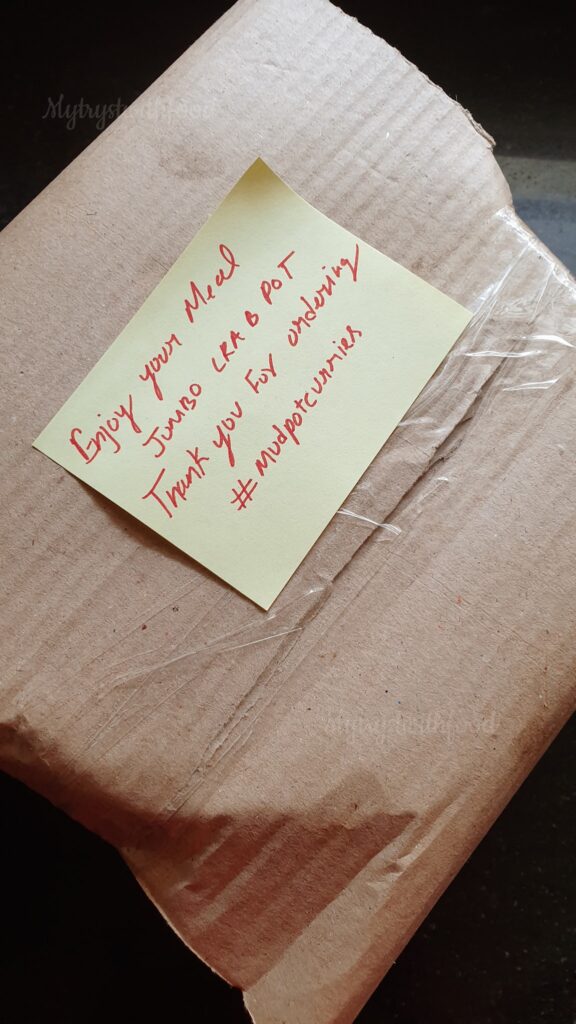 Mytrystwithfood
Enjoy your Meal
JUMBO CRAB POT
Thank you For ordering
#mudpotcurries
Mytrystwithfood